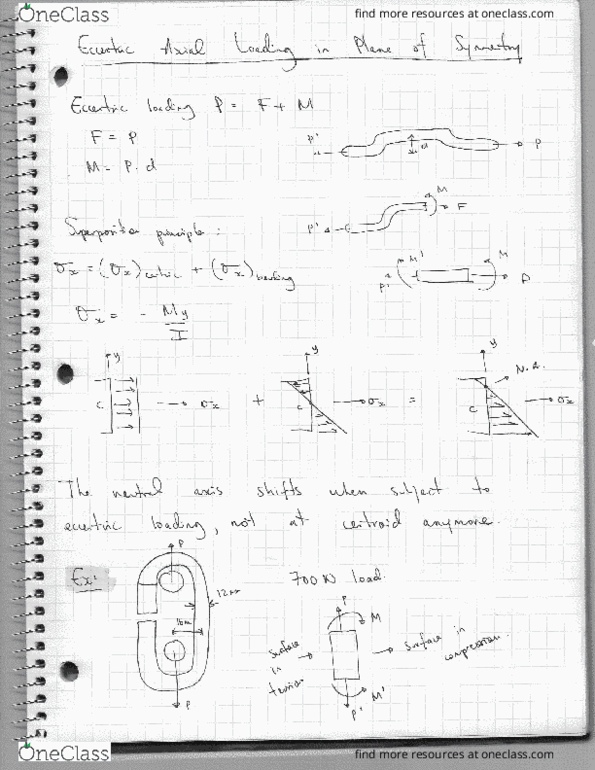 OneClass
find more resources at oneclass.com
Eccentric Axial Loading in Plane of Symmetry
Eccentric loading P = F + M
F = P
M = P. d
P'
d
P
M
F
P'
Superposition principle:
σx = (σx)centric + (σx)bending
M'
M
P'
P
σx = - My/I
y
C
σx
+
y
C
σx
=
y
N.A.
C
σx
The neutral axis shifts when subject to
eccentric loading, not at centroid anymore.
Ex:
P
700 N load.
12mm
16mm
P
P
M
surface
in
tension
surface in
compression.
M'
P'
OneClass
find more resources at oneclass.com